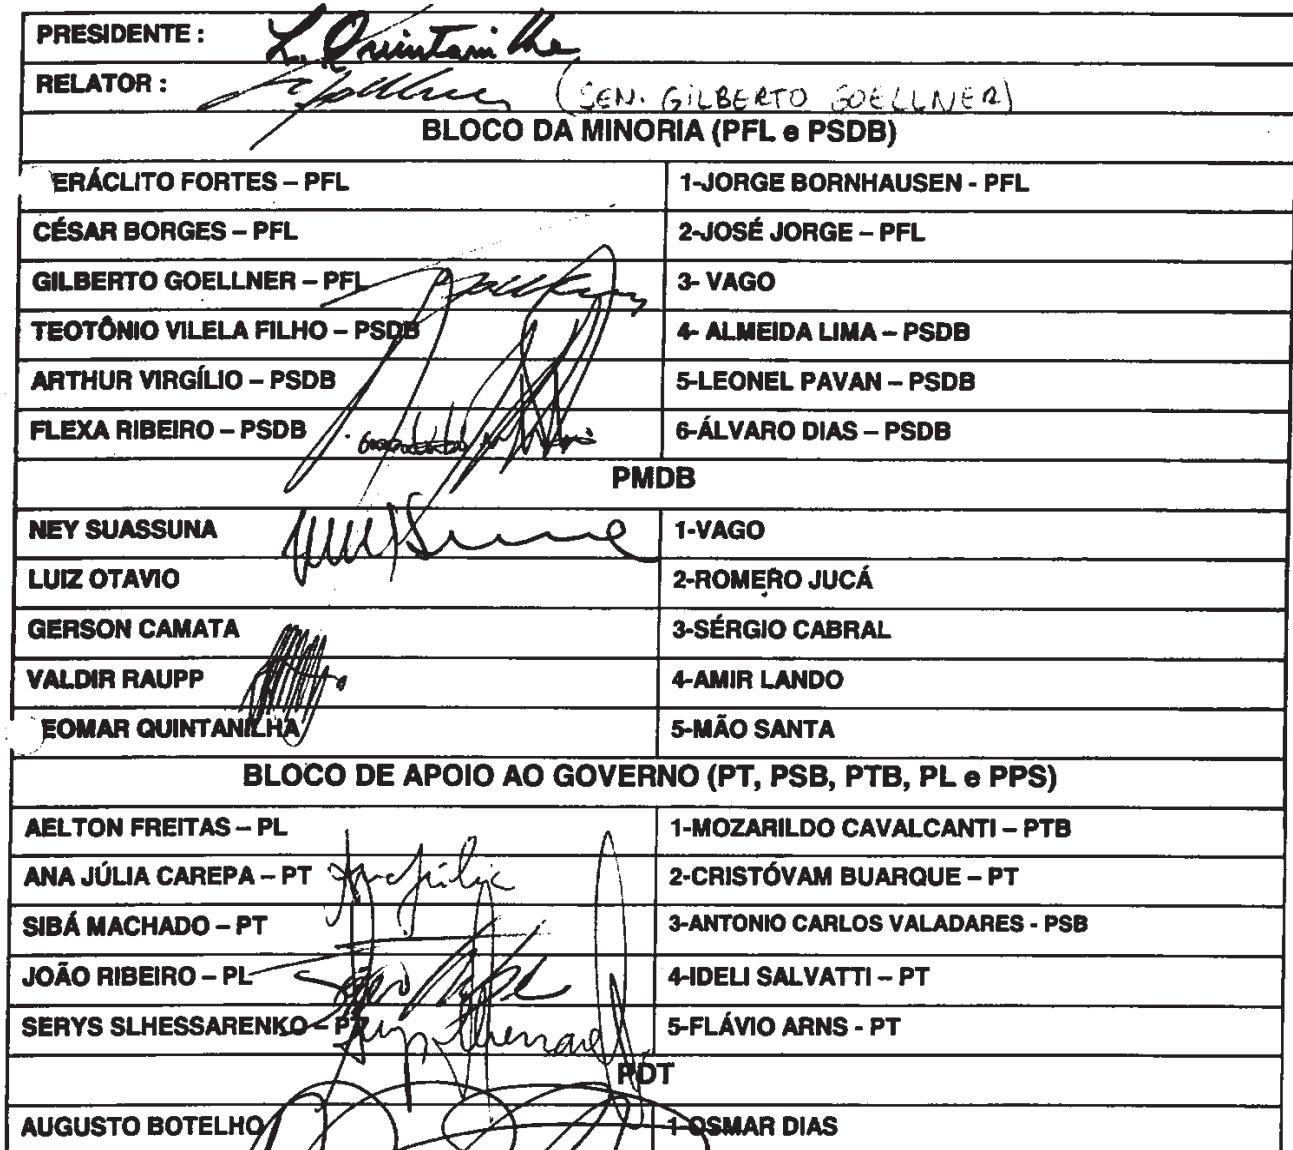 PRESIDENTE : L. Quintanilha
RELATOR : (SEN. GILBERTO GOELLNER)
BLOCO DA MINORIA (PFL e PSDB)
ERÁCLITO FORTES – PFL 1-JORGE BORNHAUSEN - PFL
CÉSAR BORGES – PFL 2-JOSÉ JORGE – PFL
GILBERTO GOELLNER – PFL 3- VAGO
TEOTÔNIO VILELA FILHO – PSDB 4- ALMEIDA LIMA – PSDB
ARTHUR VIRGÍLIO – PSDB 5-LEONEL PAVAN – PSDB
FLEXA RIBEIRO – PSDB 6-ÁLVARO DIAS – PSDB
PMDB
NEY SUASSUNA 1-VAGO
LUIZ OTAVIO 2-ROMERO JUCÁ
GERSON CAMATA 3-SÉRGIO CABRAL
VALDIR RAUPP 4-AMIR LANDO
EOMAR QUINTANILHA 5-MÃO SANTA
BLOCO DE APOIO AO GOVERNO (PT, PSB, PTB, PL e PPS)
AELTON FREITAS – PL 1-MOZARILDO CAVALCANTI – PTB
ANA JÚLIA CAREPA – PT 2-CRISTÓVAM BUARQUE – PT
SIBÁ MACHADO – PT 3-ANTONIO CARLOS VALADARES - PSB
JOÃO RIBEIRO – PL 4-IDELI SALVATTI – PT
SERYS SLHESSARENKO – PT 5-FLÁVIO ARNS - PT
PDT
AUGUSTO BOTELHO 1-OSMAR DIAS